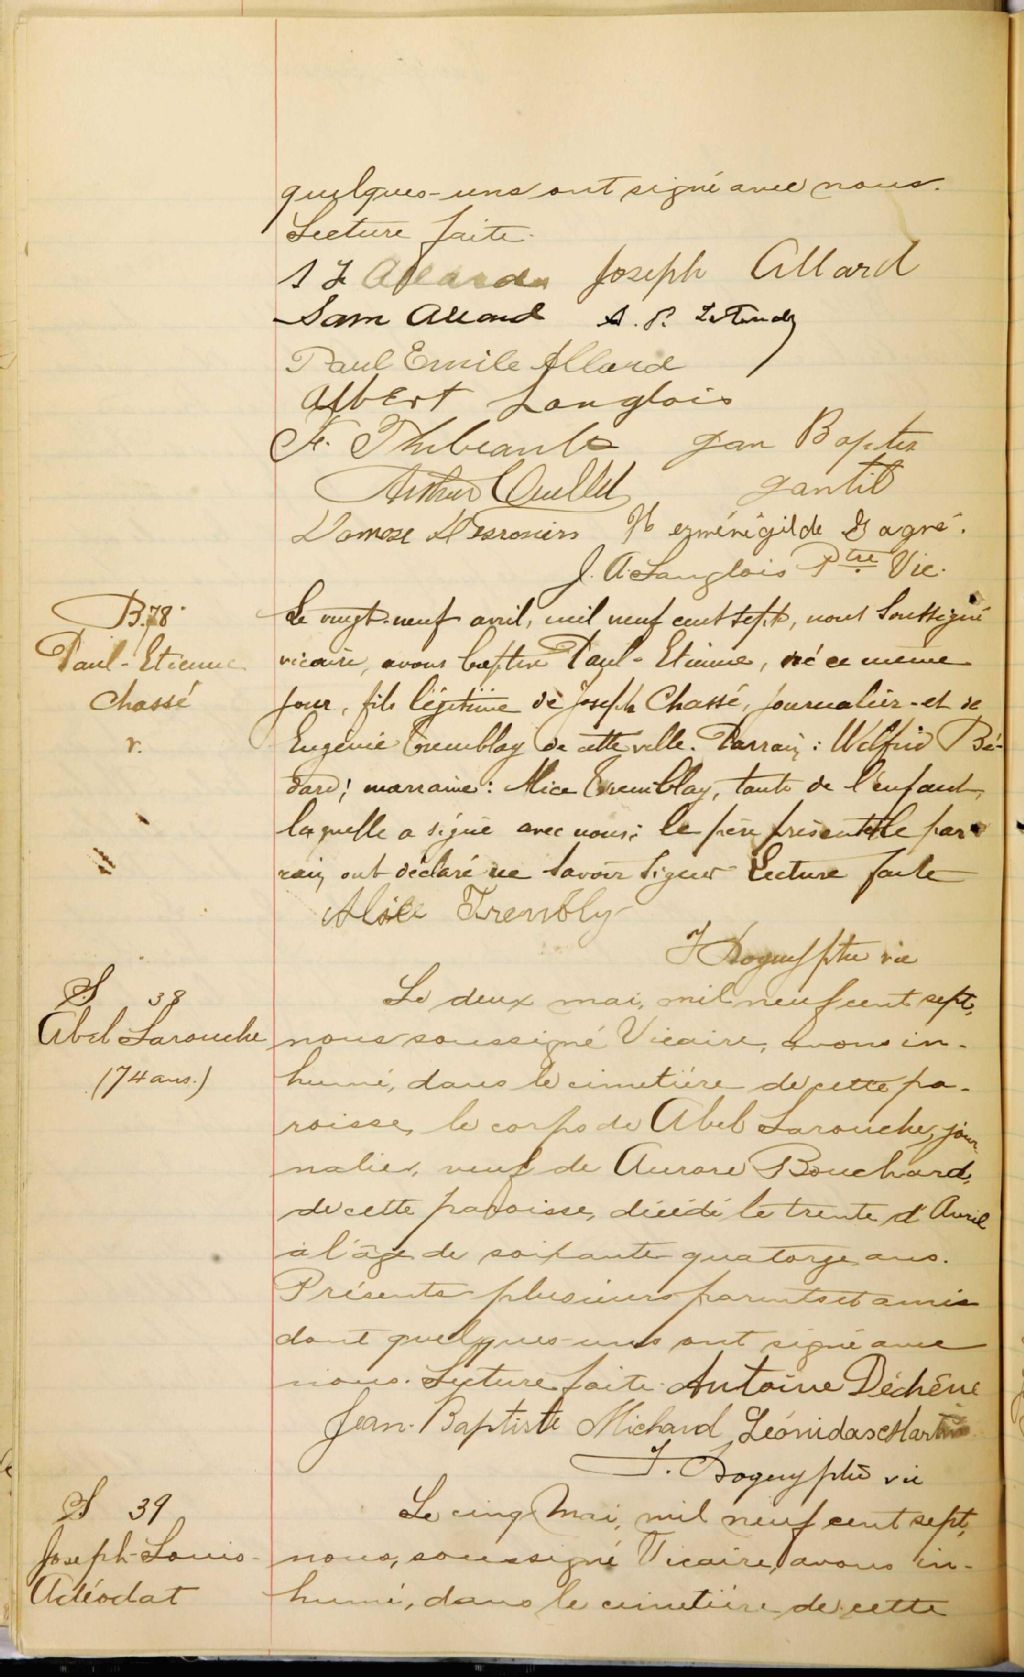 quelques-uns ont signé avec nous.
Lecture faite.
Joseph Allard
Sam Allard
Paul Emile Allard
Albert Langlois
F. Thibeault Jean Baptis
Arthur Ouellet Gantil
Damase Desrosiers Herménégilde Gagné.
J. A. Langlois Ptre Vic.
B. 78
Paul-Etienne
Chassé
r.
Le vingt-neuf avril, mil neuf cent sept, nous soussigné
vicaire, avons baptisé Paul-Etienne, né ce même
jour, fils légitime de Joseph Chassé, journalier et de
Eugénie Tremblay de cette ville. Parrain : Wilfrid Bé-
dard ; marraine : Alice Tremblay, tante de l'enfant,
laquelle a signé avec nous ; le père présent et le par-
rain ont déclaré ne savoir signer Lecture faite
Alice Trembly
ptre vic
S 38
Abel Larouche
(74 ans.)
Le deux mai, mil neuf cent sept,
nous soussigné Vicaire, avons in-
humé, dans le cimetière de cette pa-
roisse, le corps de Abel Larouche, jour-
nalier, veuf de Aurore Bouchard,
de cette paroisse, décédé le trente d'Avril
à l'âge de soixante quatorze ans.
Présents plusieurs parents et amis
dont quelques-uns ont signé avec
nous. Lecture faite. Antoine Déchêne
Jean-Baptiste Michaud Léonidas Martin
ptre vic
S 39
Joseph-Louis-
Adéodat
Le cinq Mai, mil neuf cent sept,
nous, soussigné Vicaire, avons in-
humé, dans le cimetière de cette